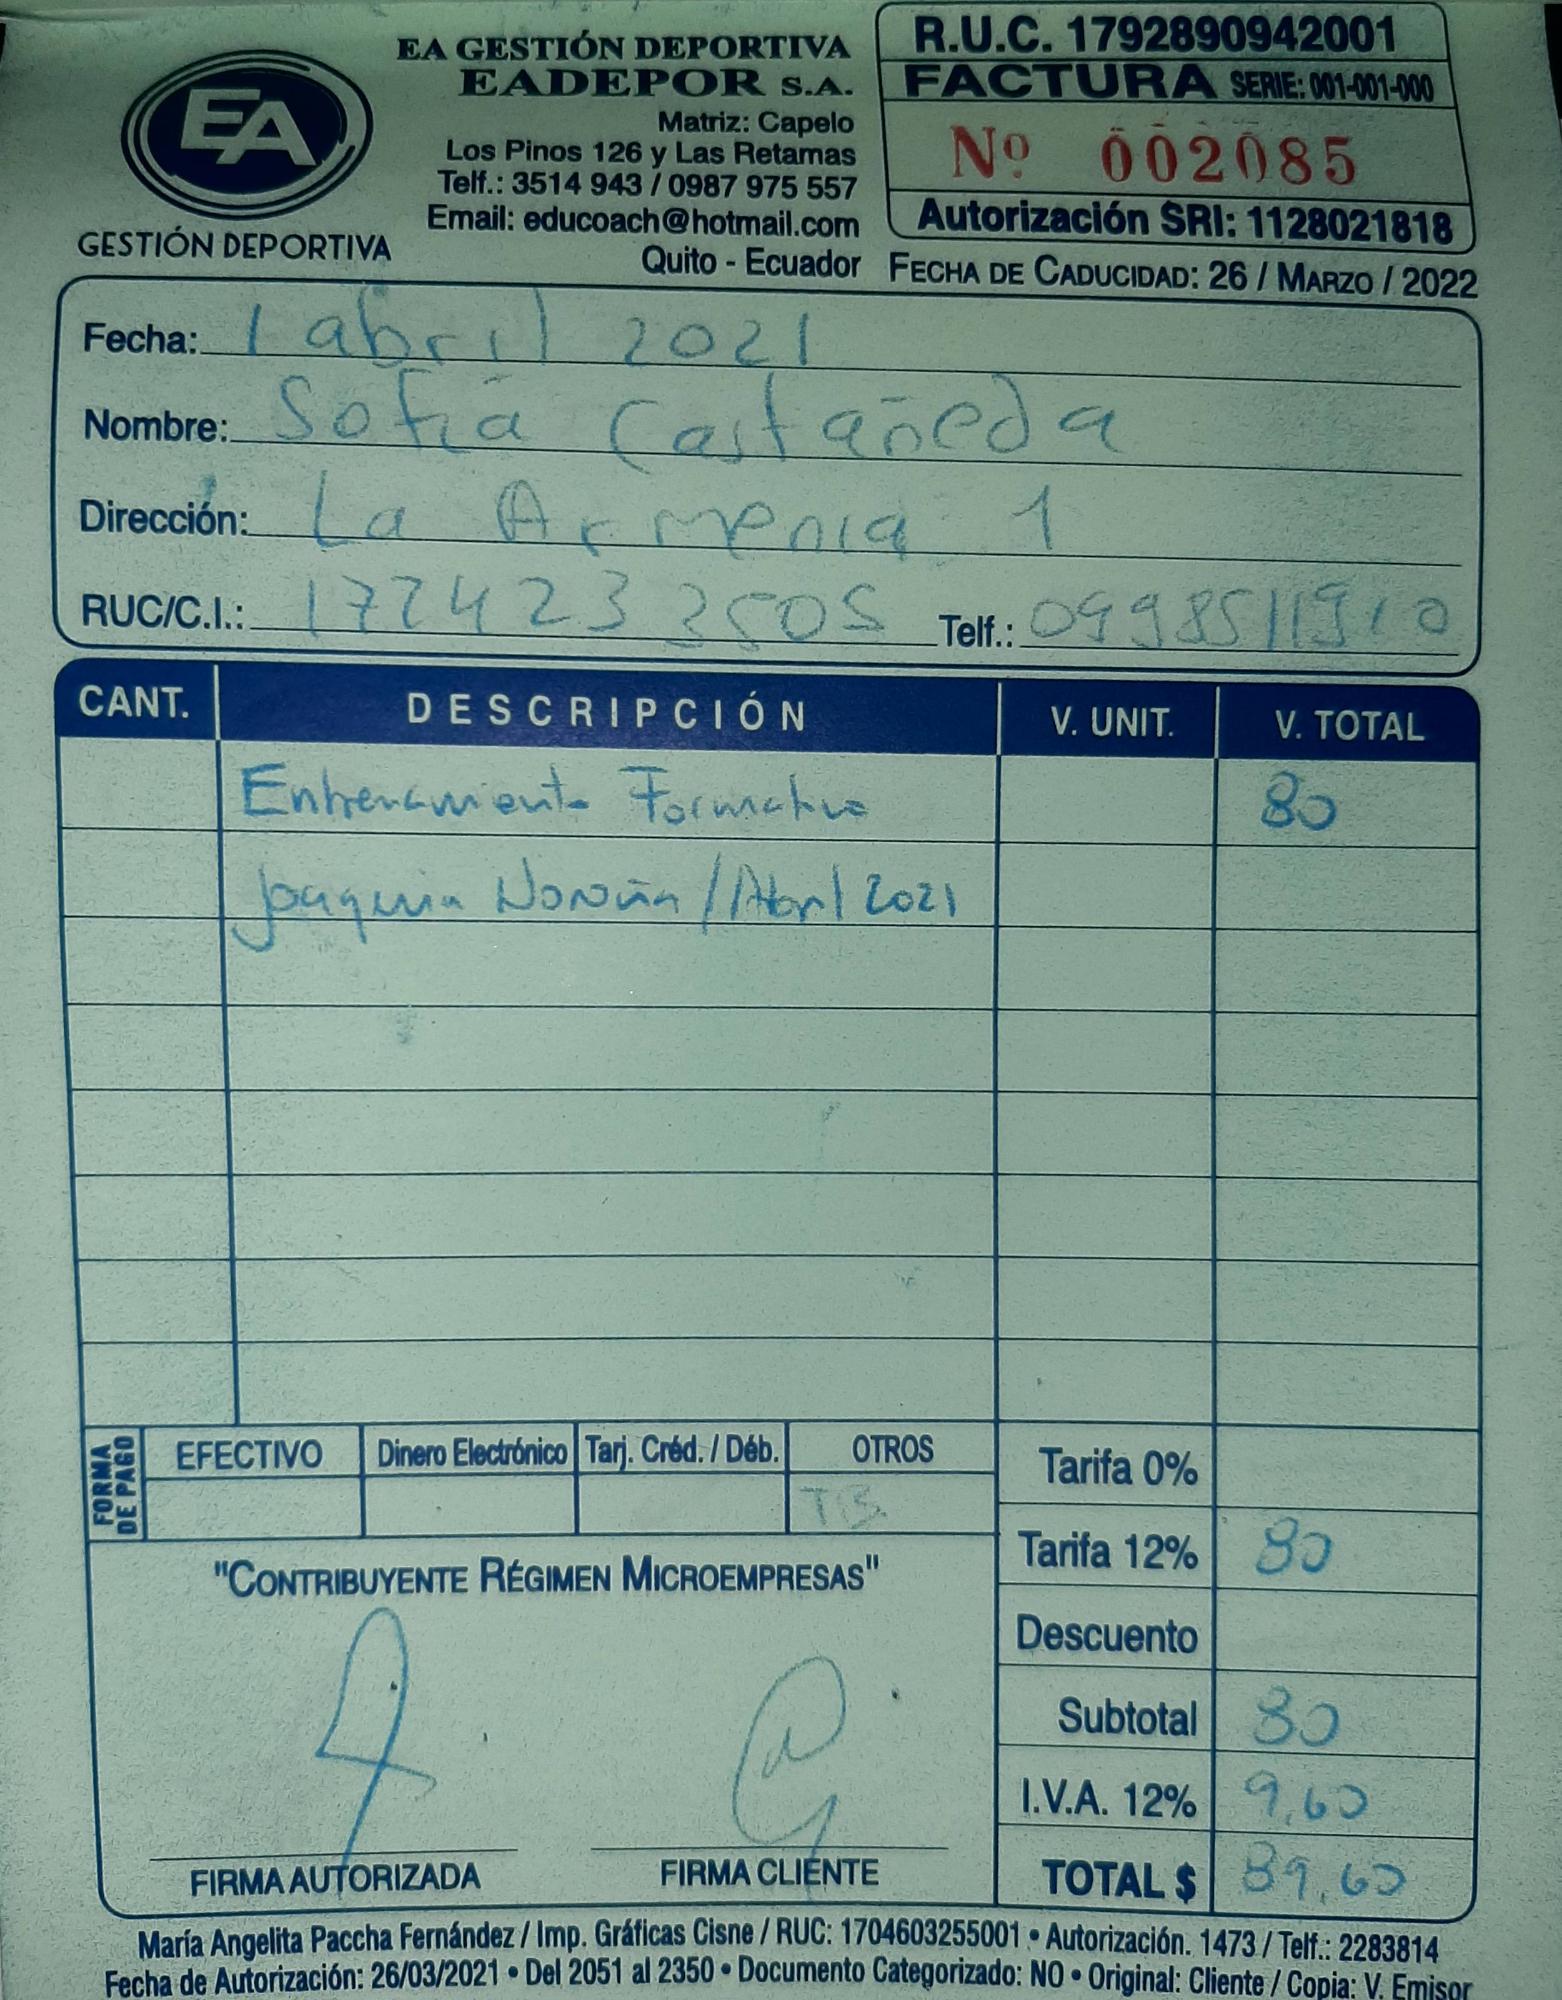 EA
GESTIÓN DEPORTIVA
EA GESTIÓN DEPORTIVA
EADEPOR S.A.
Matriz: Capelo
Los Pinos 126 y Las Retamas
Telf.: 3514 943 / 0987 975 557
Email: educoach@hotmail.com
Quito - Ecuador
R.U.C. 1792890942001
FACTURA SERIE: 001-001-000
Nº 002085
Autorización SRI: 1128021818
FECHA DE CADUCIDAD: 26 / MARZO / 2022
Fecha: 1 abril 2021
Nombre: Sofia Castañeda
Dirección: La Armenia 1
RUC/C.I.: Telf.:
CANT. DESCRIPCIÓN V. UNIT. V. TOTAL
Entrenamiento Formativo 80
Joaquin Noroña / Abril 2021
FORMA DE PAGO
EFECTIVO Dinero Electrónico Tarj. Créd. / Déb. OTROS
Tarifa 0%
Tarifa 12% 80
Descuento
Subtotal 80
I.V.A. 12% 9,60
TOTAL $ 89,60
"CONTRIBUYENTE RÉGIMEN MICROEMPRESAS"
FIRMA AUTORIZADA FIRMA CLIENTE
María Angelita Paccha Fernández / Imp. Gráficas Cisne / RUC: 1704603255001 • Autorización. 1473 / Telf.: 2283814
Fecha de Autorización: 26/03/2021 • Del 2051 al 2350 • Documento Categorizado: NO • Original: Cliente / Copia: V. Emisor